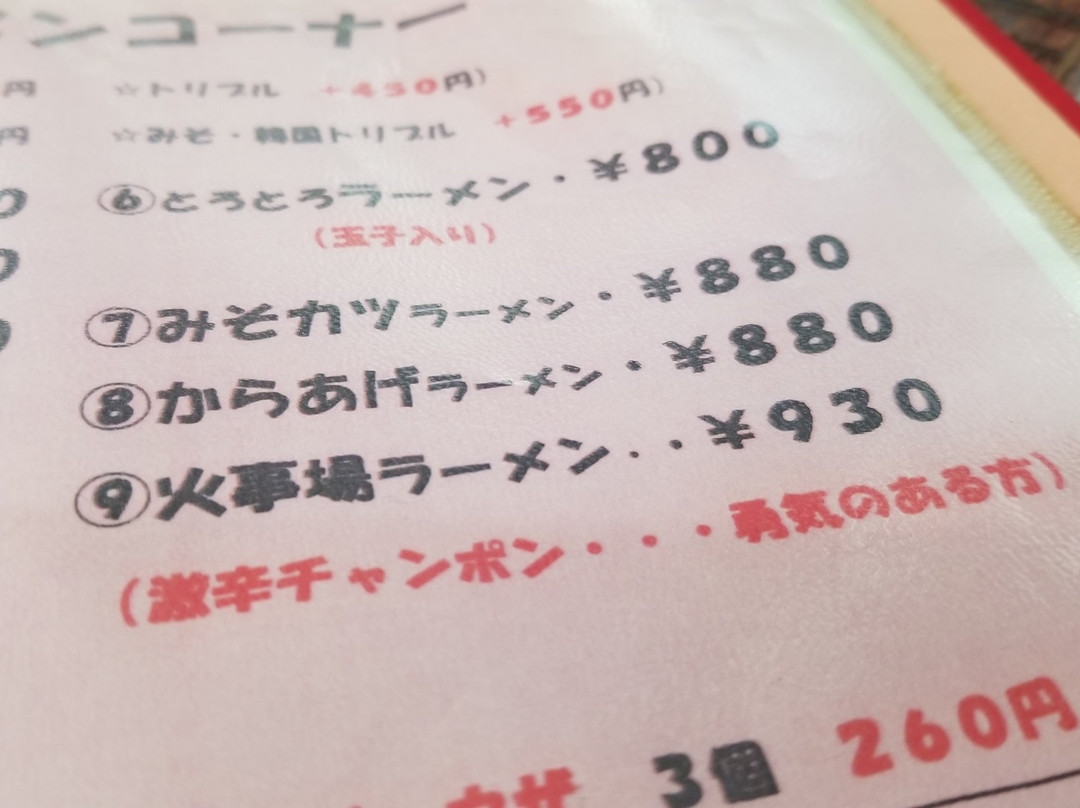 ンコーナー
円 ☆トリプル +450円)
円 ☆みそ・韓国トリプル +550円)
⑥とろとろラーメン・¥800
(玉子入り)
⑦みそカツラーメン・¥880
⑧からあげラーメン・¥880
⑨火事場ラーメン・・¥930
(激辛チャンポン・・・勇気のある方)
3個 260円